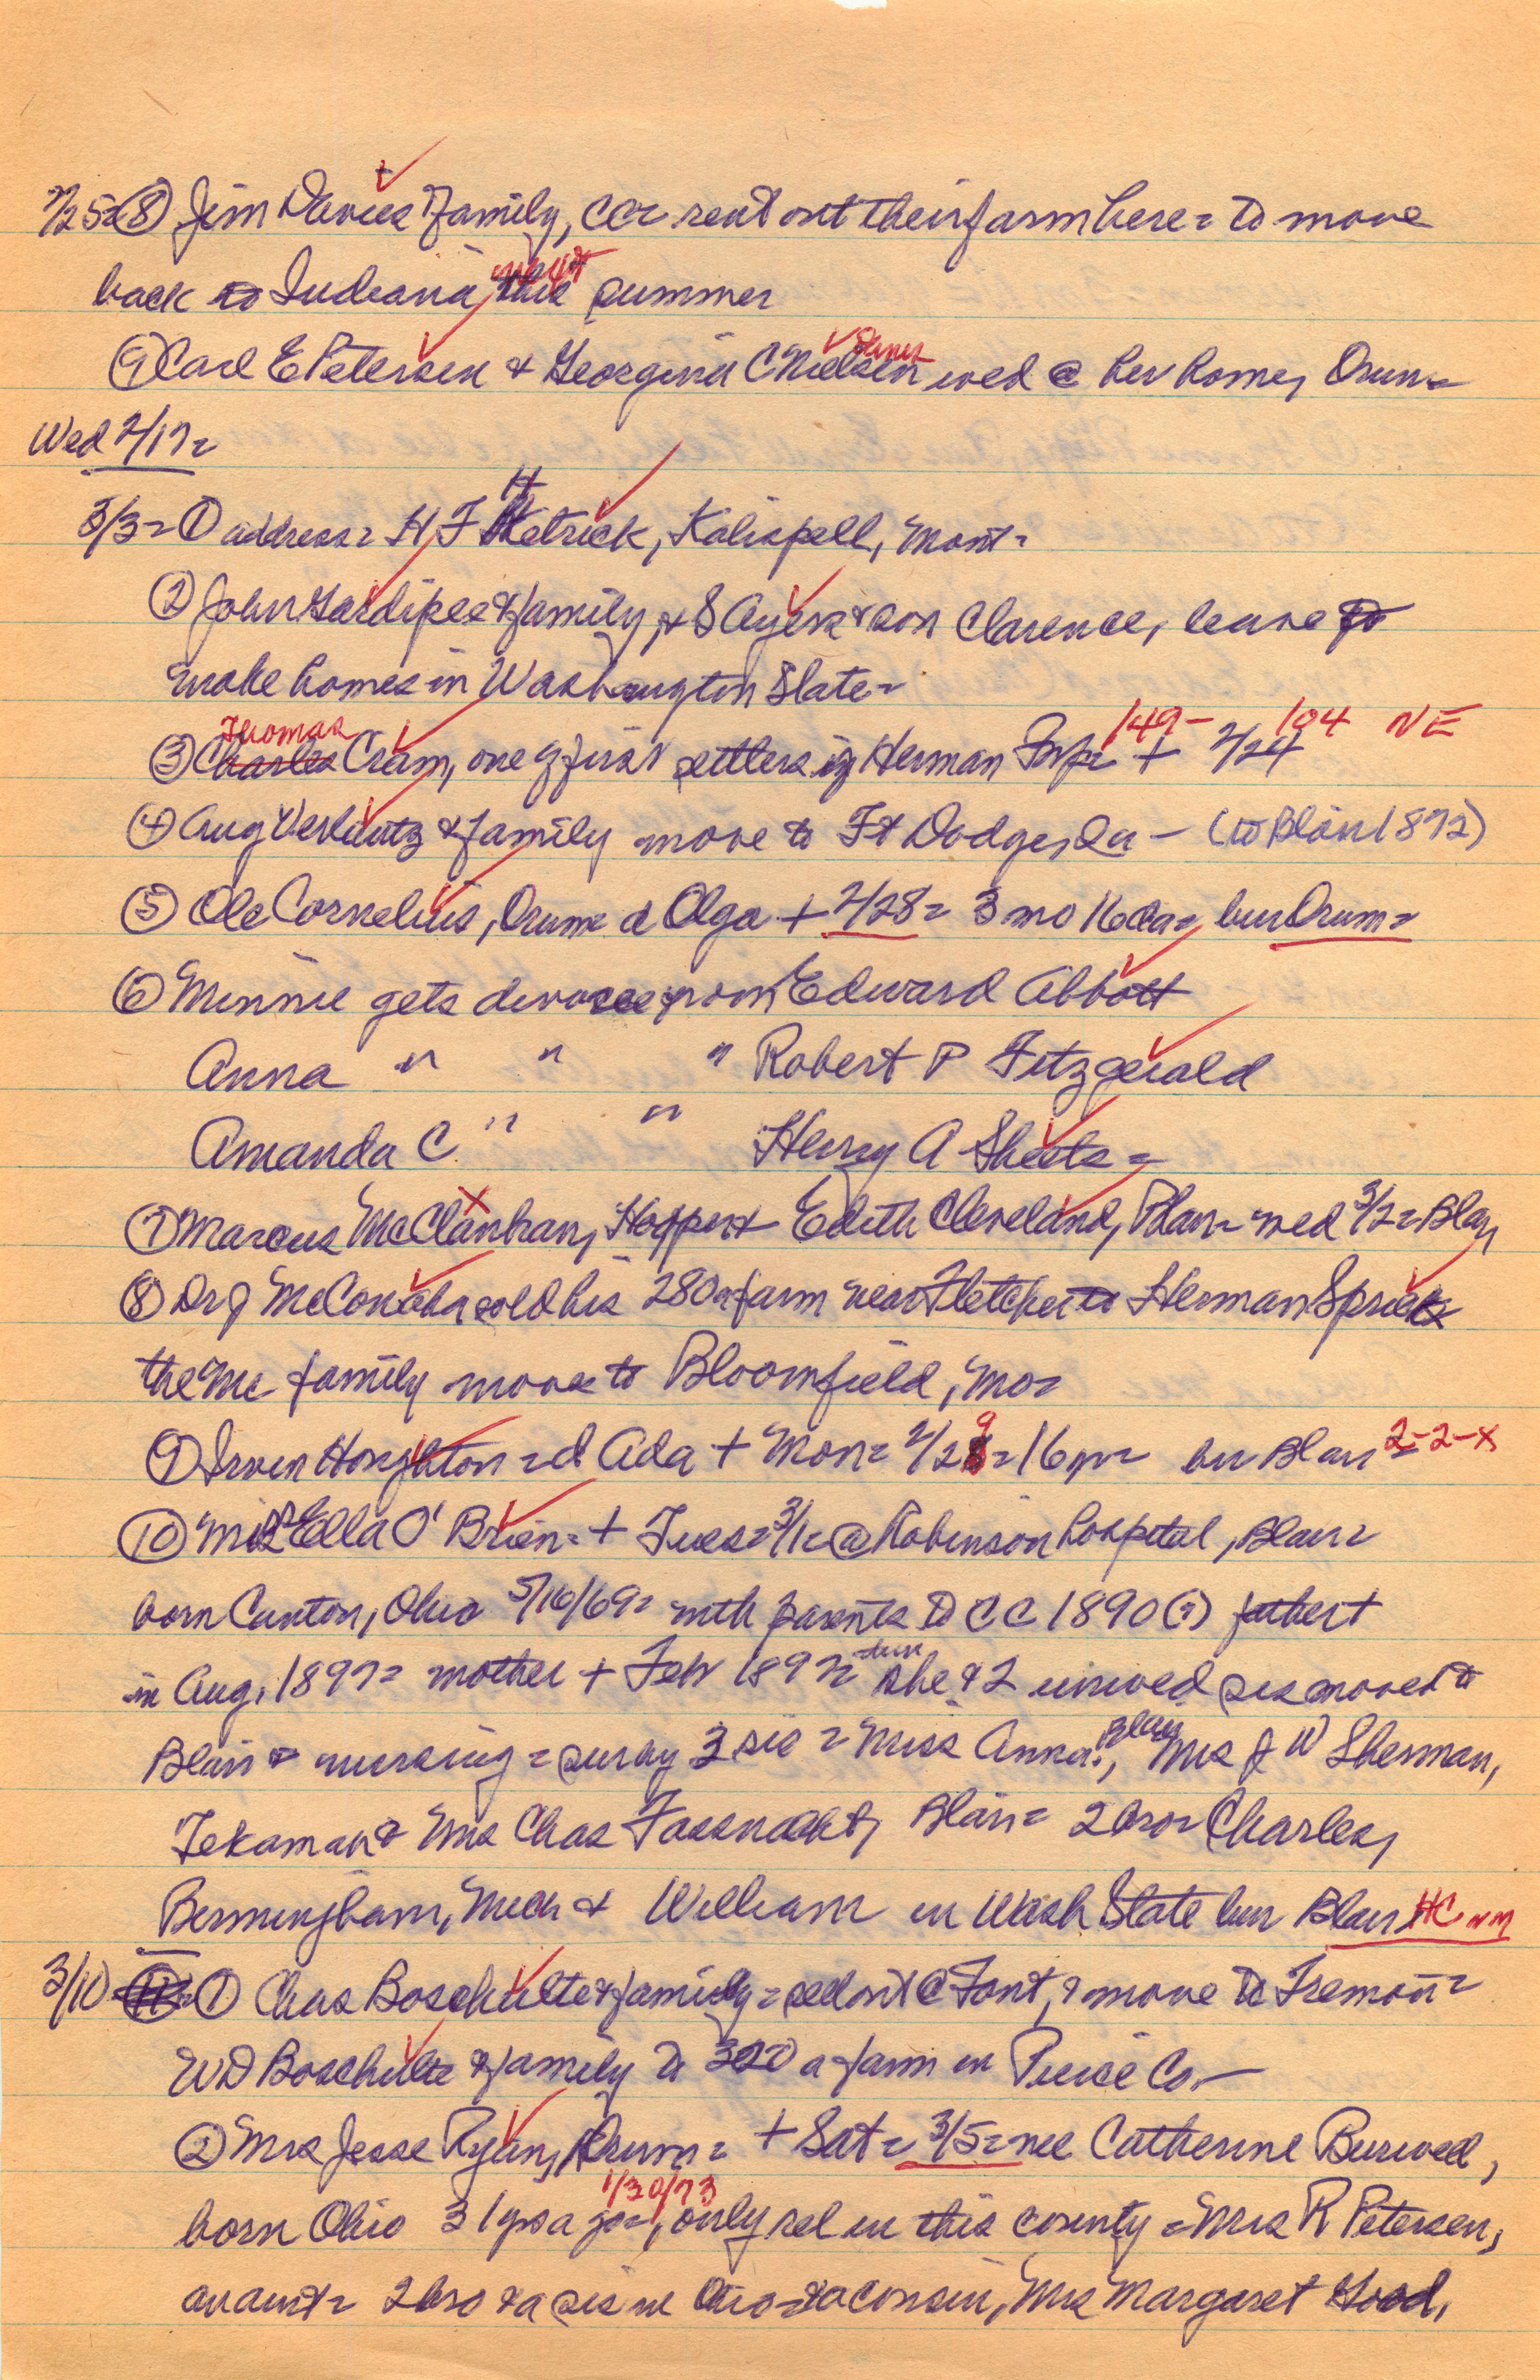 2/25= ⑧ Jim Davies & family, CC= rent out their farm here= to move
back to Indiana, this summer
⑨ Carl E Petersen & Georgina C Nielsen wed @ her home, Orum=
Wed 2/17=
3/3= ① address= H F Hetrick, Kalispell, Mont=
② John Gardipee & family, & S Ayers & son Clarence, leave to
make homes in Washington State=
Thomas 149- 104 NE
③ Charles Cram, one of first settlers in Herman Twp= + 2/24
④ Aug Verlautz & family move to Ft Dodge, Ia - (to Blair 1872)
⑤ Ole Cornelius, Orum= d Olga + 2/28= 3 mo 16 da= bur Orum=
⑥ Minnie gets divorce from Edward Abbott
Anna " " " Robert P Fitzgerald
Amanda C " " Henry A Sheets=
⑦ Marcus McClanhan, & Edith Cleveland, Blair= wed 3/2= Blair
⑧ Dr J McConaha sold his 280 a farm near Fletcher to Herman Sprick
the Mc family move to Bloomfield, Mo=
⑨ Irven Houghton= d Ada + Mon= 2/29= 16 yr= bur Blair= 2-2-x
⑩ Miss Ella O'Brien= + Tues= 3/1= @ Robinson hospital, Blair=
born Canton, Ohio 5/16/69= with parents to CC 1890(?) father +
in Aug, 1897= mother + Feb 1897= she & 2 unwed sis moved to
Blair & nursing= surv by 3 sis= Miss Anna, Blair, Mrs J W Sherman,
Tekamah & Mrs Chas Fassnacht, Blair= 2 bro= Charles,
Bermingham, Mich & William in Wash State bur Blair HC NM
3/10 ① Chas Boschulte & family= sell out @ Font, & move to Fremont=
WD Boschulte & family to 320 a farm in Pierce Co-
② Mrs Jesse Ryan, Orum= + Sat= 3/5= nee Catherine Burwell,
1/30/73
born Ohio 31 yrs ago=, only rel in this county= Mrs R Petersen,
an aunt= 2 bro & a sis in Ohio= & a cousin, Mrs Margaret Good,